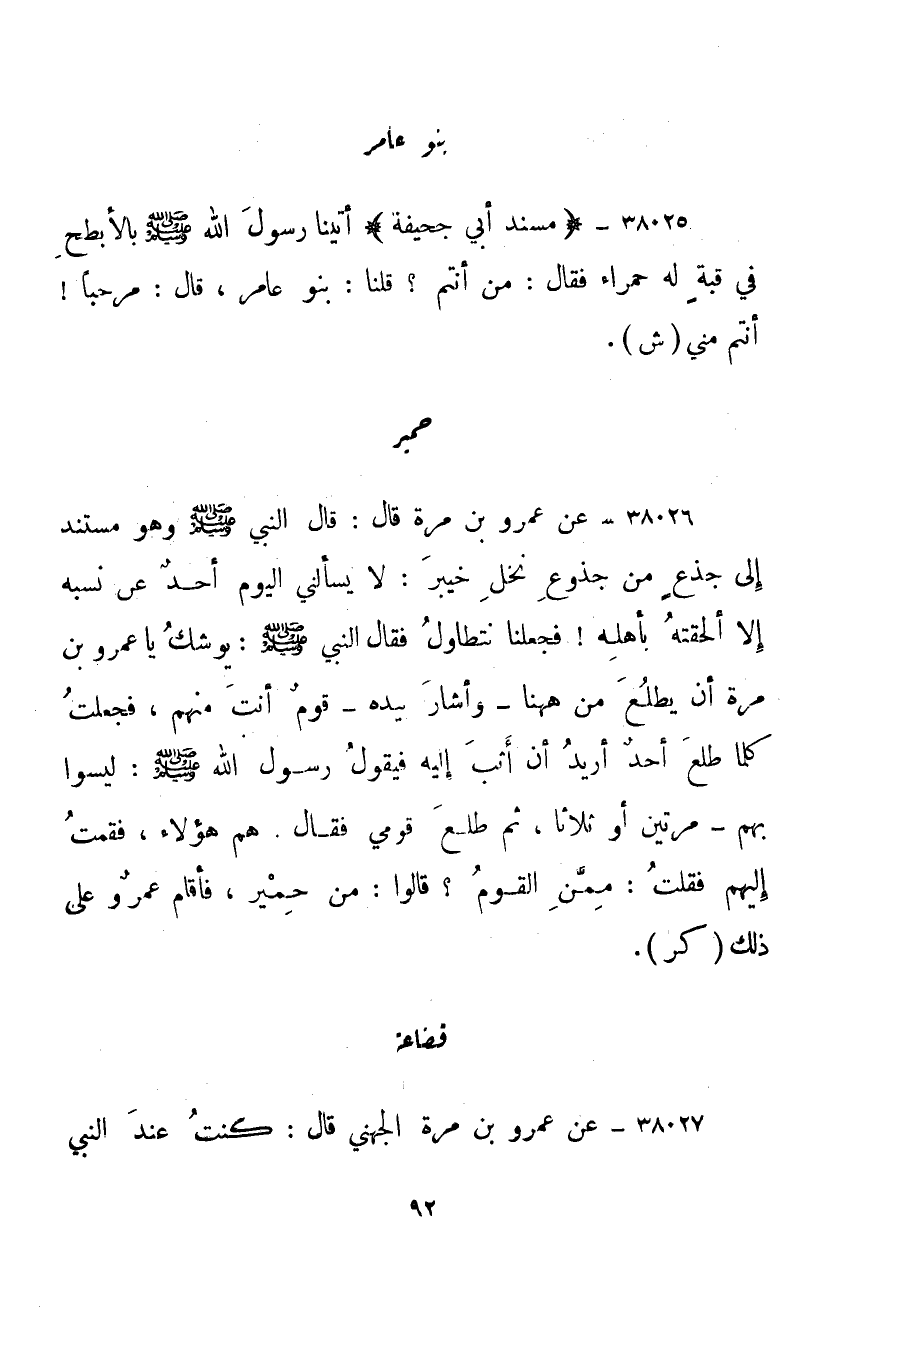 بنو عامر
٣٨٠٢٥ – ﴿ مسند أبي جحيفة ﴾ أتينا رسولَ الله ﷺ بالأبطحِ
في قبةٍ له حمراء فقال : من أنتم ؟ قلنا : بنو عامر ، قال : مرحباً !
أنتم مني ( ش ) .
حمير
٣٨٠٢٦ – عن عمرو بن مرة قال : قال النبي ﷺ وهو مستند
إلى جذعٍ من جذوعِ نخلِ خيبرَ : لا يسألني اليوم أحدٌ عن نسبه
إلا ألحقتهُ بأهلِه ! فجعلنا نتطاولُ فقال النبي ﷺ : يوشكُ يا عمرو بن
مرة أن يطلُعَ من ههنا – وأشارَ بيده – قومٌ أنتَ منهم ، فجعلتُ
كلما طلعَ أحدٌ أريدُ أن أَثبَ إليه فيقولُ رسول الله ﷺ : ليسوا
بهم – مرتين أو ثلاثا ، ثم طلعَ قومي فقال . هم هؤلاء ، فقمتُ
إليهم فقلتُ : مِمَّنِ القومُ ؟ قالوا : من حِمْير ، فأقام عمرٌو على
ذلك ( كر ) .
قضاعة
٣٨٠٢٧ – عن عمرو بن مرة الجهني قال : كنتُ عندَ النبي
٩٢